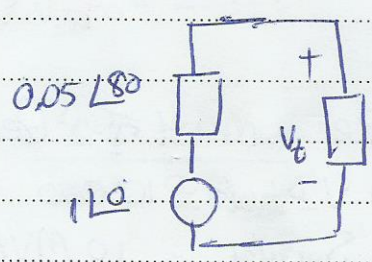 +
0.05∠80
V_t
-
1∠0